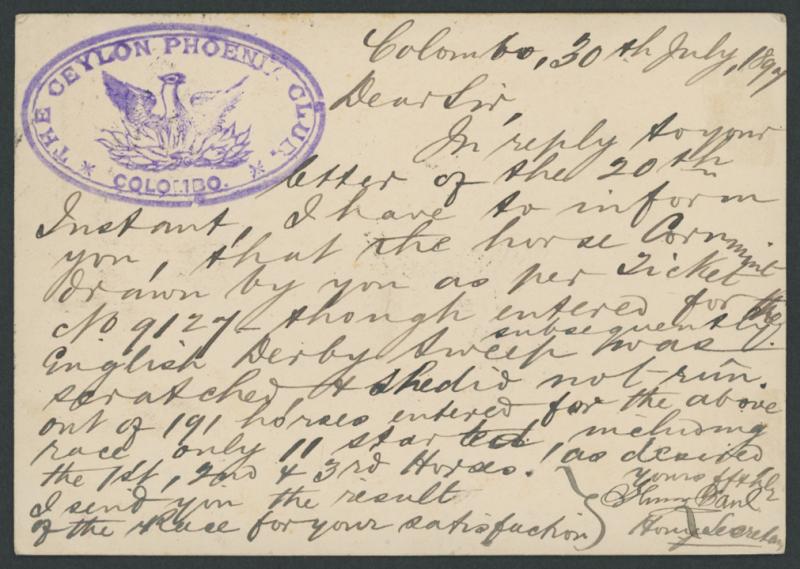 THE CEYLON PHOENIX CLUB.
COLOMBO.
Colombo, 30th July, 1897
Dear Sir,
In reply to your
letter of the 20th
Instant, I have to inform
you, that the horse Cornmint
drawn by you as per Ticket
No 9127 - though entered for the
English Derby Sweep was subsequently
scratched & she did not run.
out of 191 horses entered for the above
race only 11 started, including
the 1st, 2nd & 3rd Horses. as desired
I send you the result
of the Race for your satisfaction
Yours
Secretary